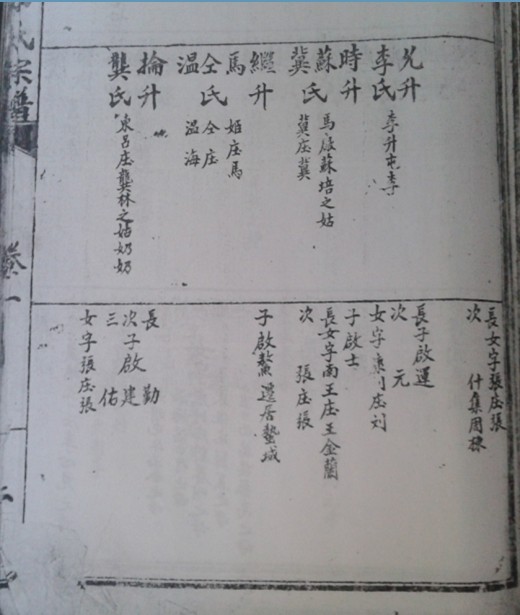 允升
李氏 李升屯李
時升
蘇氏 馬庄蘇培之姑
龔 龔庄龔
繼升
馬 姬庄馬
仝氏 仝庄
温 温海
掄升
龔氏 東呂庄龔林之姑奶奶
長女字張庄張
次 什集周棟
長子啟運
次 元
女字 庄刘
子啟士
長女字南王庄王金蘭
次 張庄張
子啟鰲 遷居 城
長 勤
次子啟建
三 佑
女字張庄張
氏宗譜
卷一